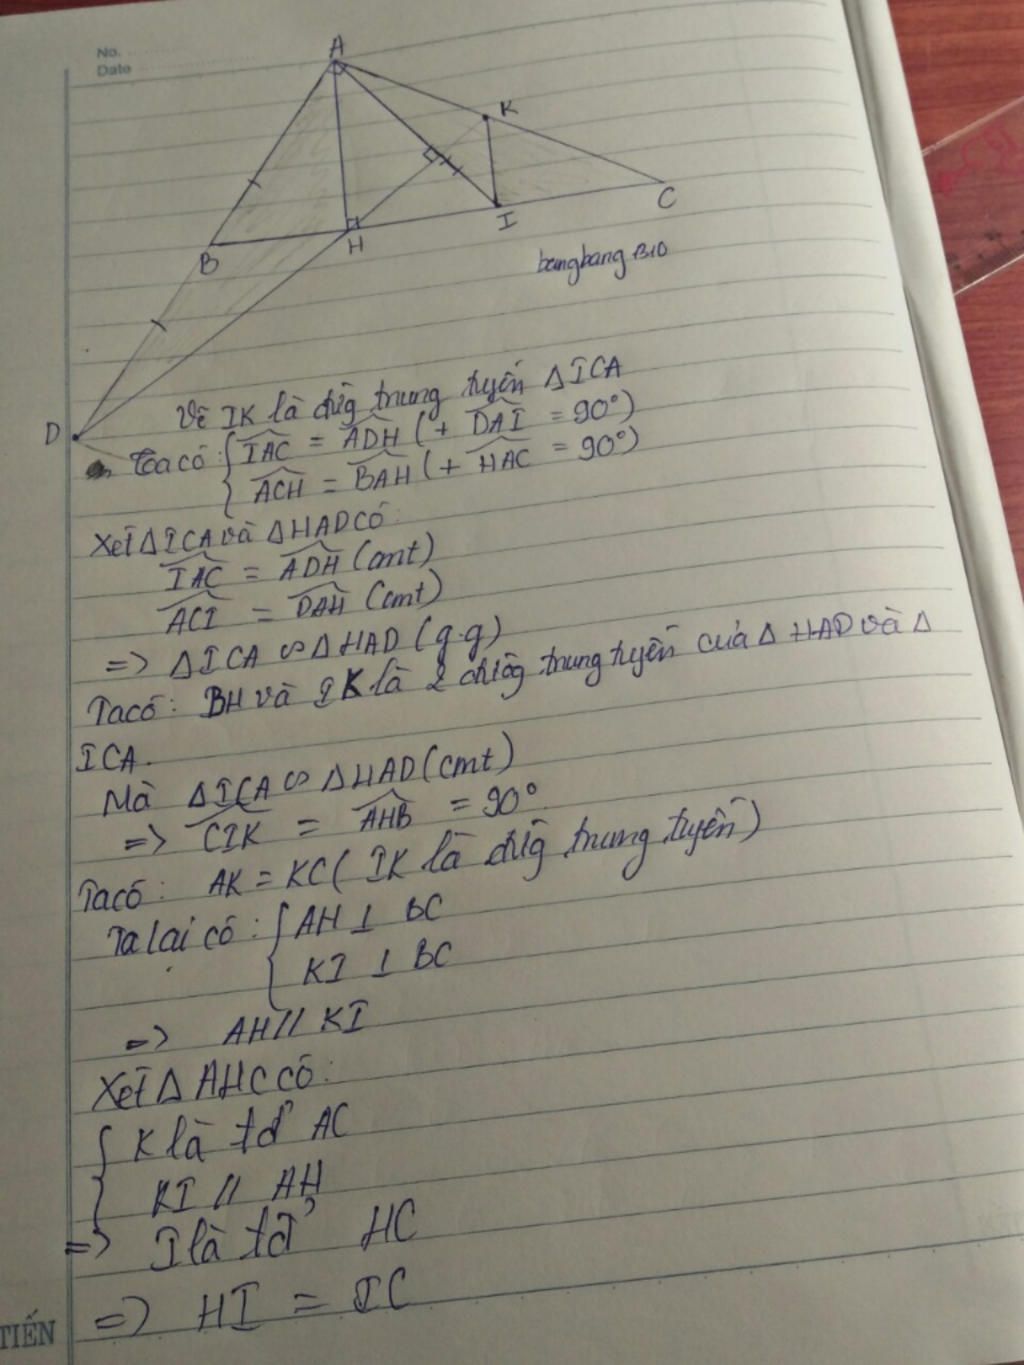 No.
Date
A
K
C
I
H
B
D
bangbang B10
Vẽ IK là đường trung tuyến ΔICA
Ta có: { IAC = ADH (+ DAI = 90°)
{ ACH = BAH (+ HAC = 90°)
Xét ΔICA và ΔHAD có:
IAC = ADH (cmt)
ACI = DAH (cmt)
=> ΔICA ∽ ΔHAD (g.g)
Ta có: BH và IK là 2 đường trung tuyến của Δ HAD và Δ
ICA.
Mà ΔICA ∽ ΔHAD (cmt)
=> CIK = AHB = 90°
Ta có: AK = KC ( IK là đường trung tuyến)
Ta lại có: { AH ⊥ BC
{ KI ⊥ BC
=> AH // KI
Xét Δ AHC có:
{ K là tđ AC
{ KI // AH
=> I là tđ HC
=> HI = IC
TIẾN